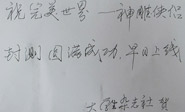 祝完美世界——神雕侠侣
封测圆满成功,早日上线
大众软件杂志社 贺